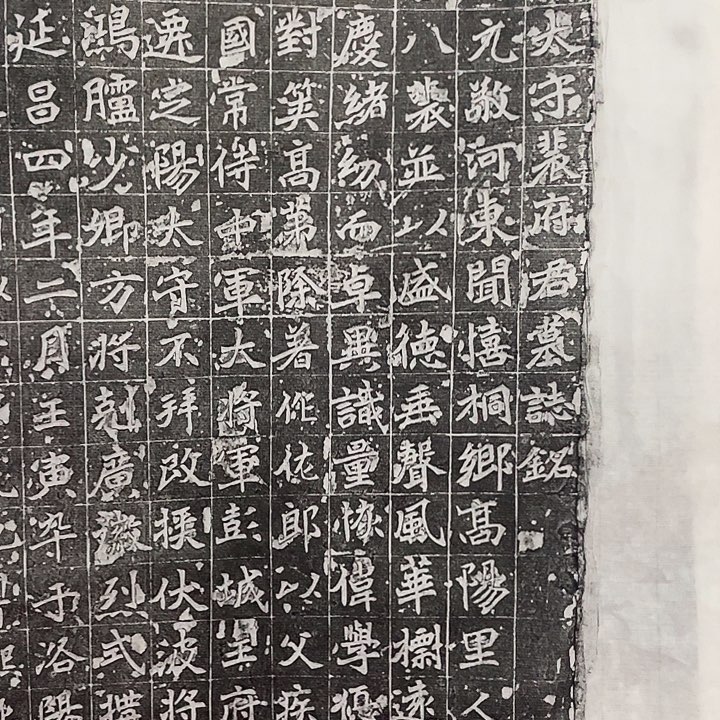 太守裴府君墓誌銘
元敬河東聞憘桐鄉高陽里人
八裴並以盛德垂聲風華標遠
慶緒幼而卓異識量恢偉學
對筞高第除著作佐郎以父疾
國常侍中軍大將軍彭城王府
遷定陽太守不拜改授伏波將
鴻臚少卿方將剋廣徽烈式摸
延昌四年二月壬寅卒于洛陽